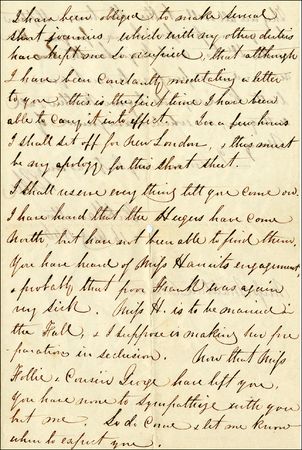 I have been obliged to make several
short journies which with my other duties
have kept me so occupied, that although
I have been constantly meditating a letter
to you, this is the first time I have been
able to carry it into effect. In a few hours
I shall set off for New London, & this must
be my apology for this short sheet.
I shall reserve every thing till you come on.
I have heard that the Hugers have come
North, but have not been able to find them.
You have heard of Miss Harriets engagement,
& probably that poor Frank was again
very sick. Miss H. is to be married in
the Fall, & I suppose is making her pre
paration in seclusion. Now that Miss
& Cousin George have left you,
you have none to sympathize with you
but me. So do come & let me know
when to expect you.